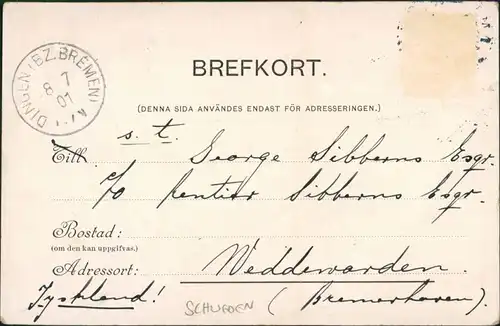 DINGEN (BZ. BREMEN)
8 7
01
BREFKORT.
(DENNA SIDA ANVÄNDES ENDAST FÖR ADRESSERINGEN.)
s. t.
Till George Sibberns Esqr.
c/o Rentier Sibberns Esqr.
Bostad:
(om den kan uppgifvas.)
Adressort: Weddewarden.
Tyskland! (Bremerhaven).
SCHWEDEN